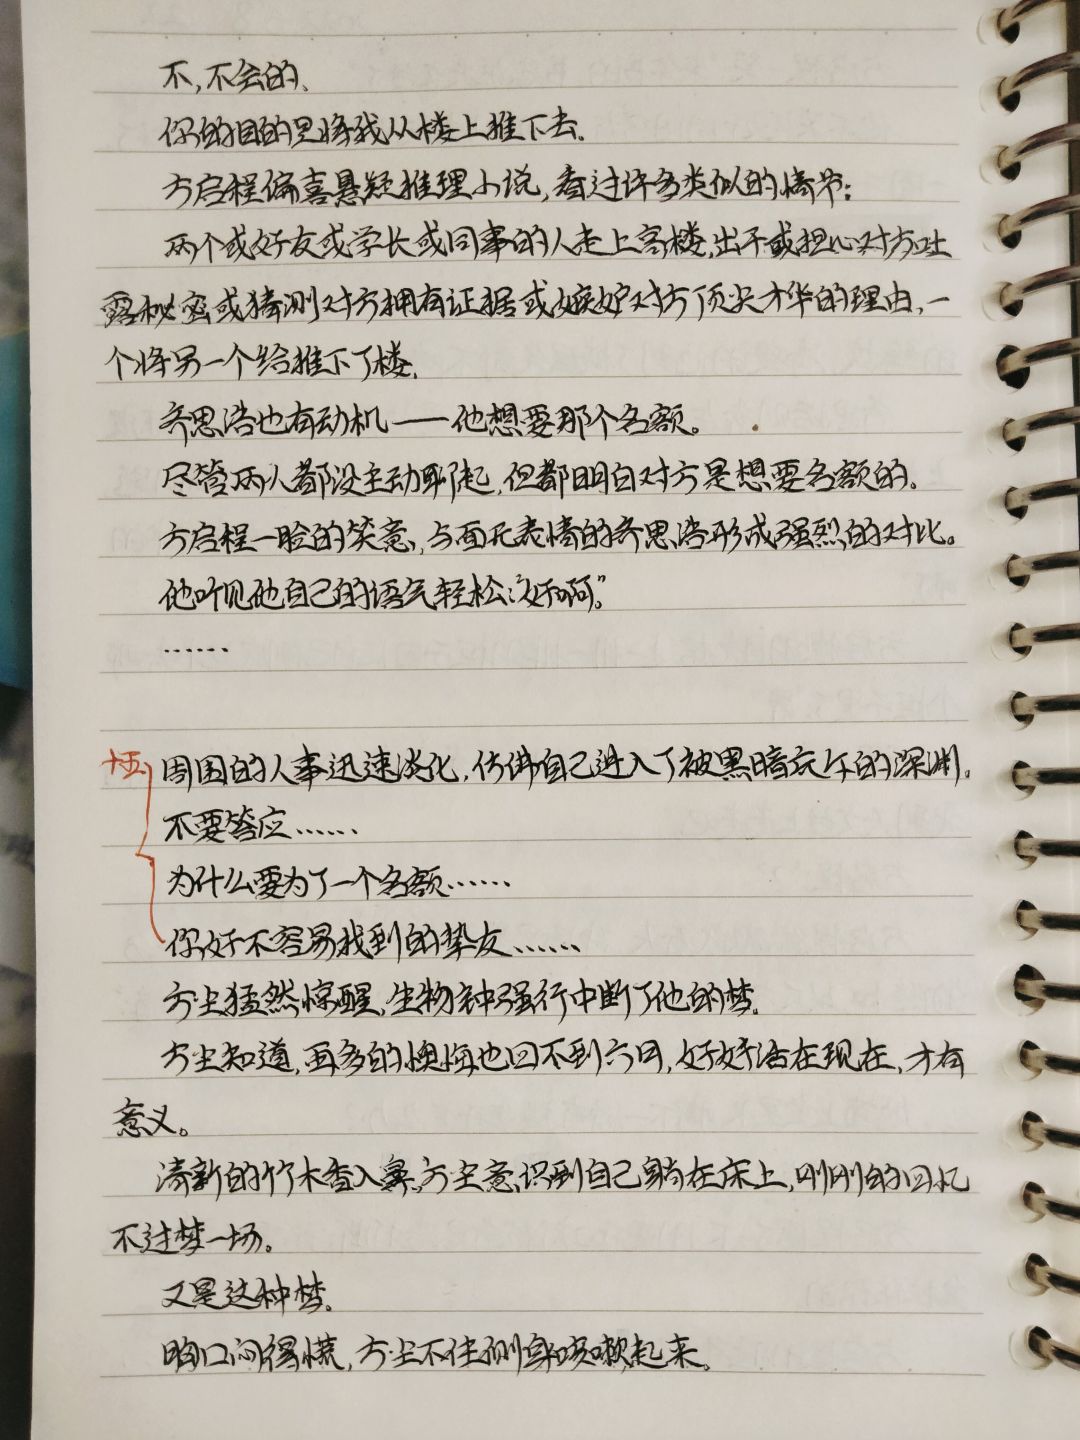 不,不会的、
你的目的是将我从楼上推下去.
方启程偏喜悬疑推理小说,看过许多类似的情节:
两个或好友或学长或同事的人走上高楼,出于或担心对方吐
露秘密或猜测对方拥有证据或嫉妒对方顶尖才华的理由,一
个将另一个给推下了楼.
齐思浩也有动机——他想要那个名额。
尽管两人都没主动聊起,但都明白对方是想要名额的。
方启程一脸的笑意,与面无表情的齐思浩形成强烈的对比。
他听见他自己的语气轻松:"好啊。"
……
周围的人事迅速淡化,仿佛自己进入了被黑暗玩弄的深渊.
不要答应……
为什么要为了一个名额……
你好不容易找到的挚友……
方尘猛然惊醒,生物钟强行中断了他的梦.
方尘知道,再多的懊悔也回不到六月,好好活在现在,才有
意义。
清新的竹木香入鼻,方尘意识到自己躺在床上,刚刚的回忆
不过梦一场。
又是这种梦.
胸口闷得慌,方尘不住侧身咳嗽起来.